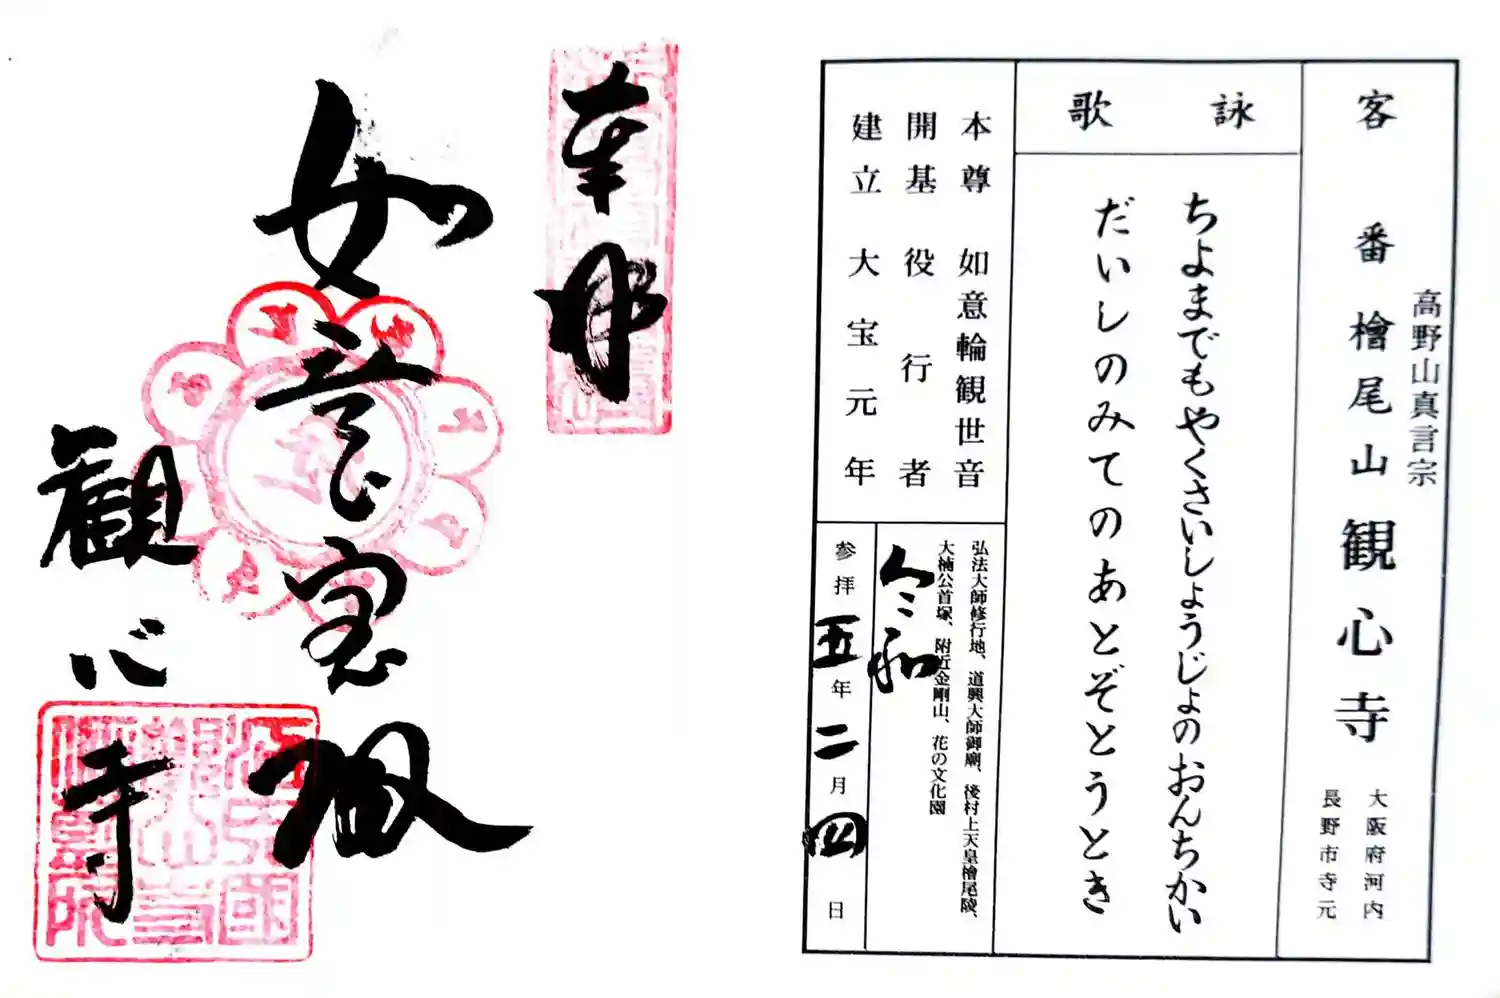 客番 檜尾山 観心寺
高野山真言宗
大阪府河内
長野市寺元
詠歌
ちよまでもやくさいしょうじょのおんちかい
だいしのみてのあとぞとうとき
本尊 如意輪観世音
開基 役行者
建立 大宝元年
弘法大師修行地、道興大師御廟、後村上天皇檜尾陵、
大楠公首塚、附近金剛山、花の文化園
令和
参拝 五年 二月 四日
奉拝
如意宝珠
観心寺